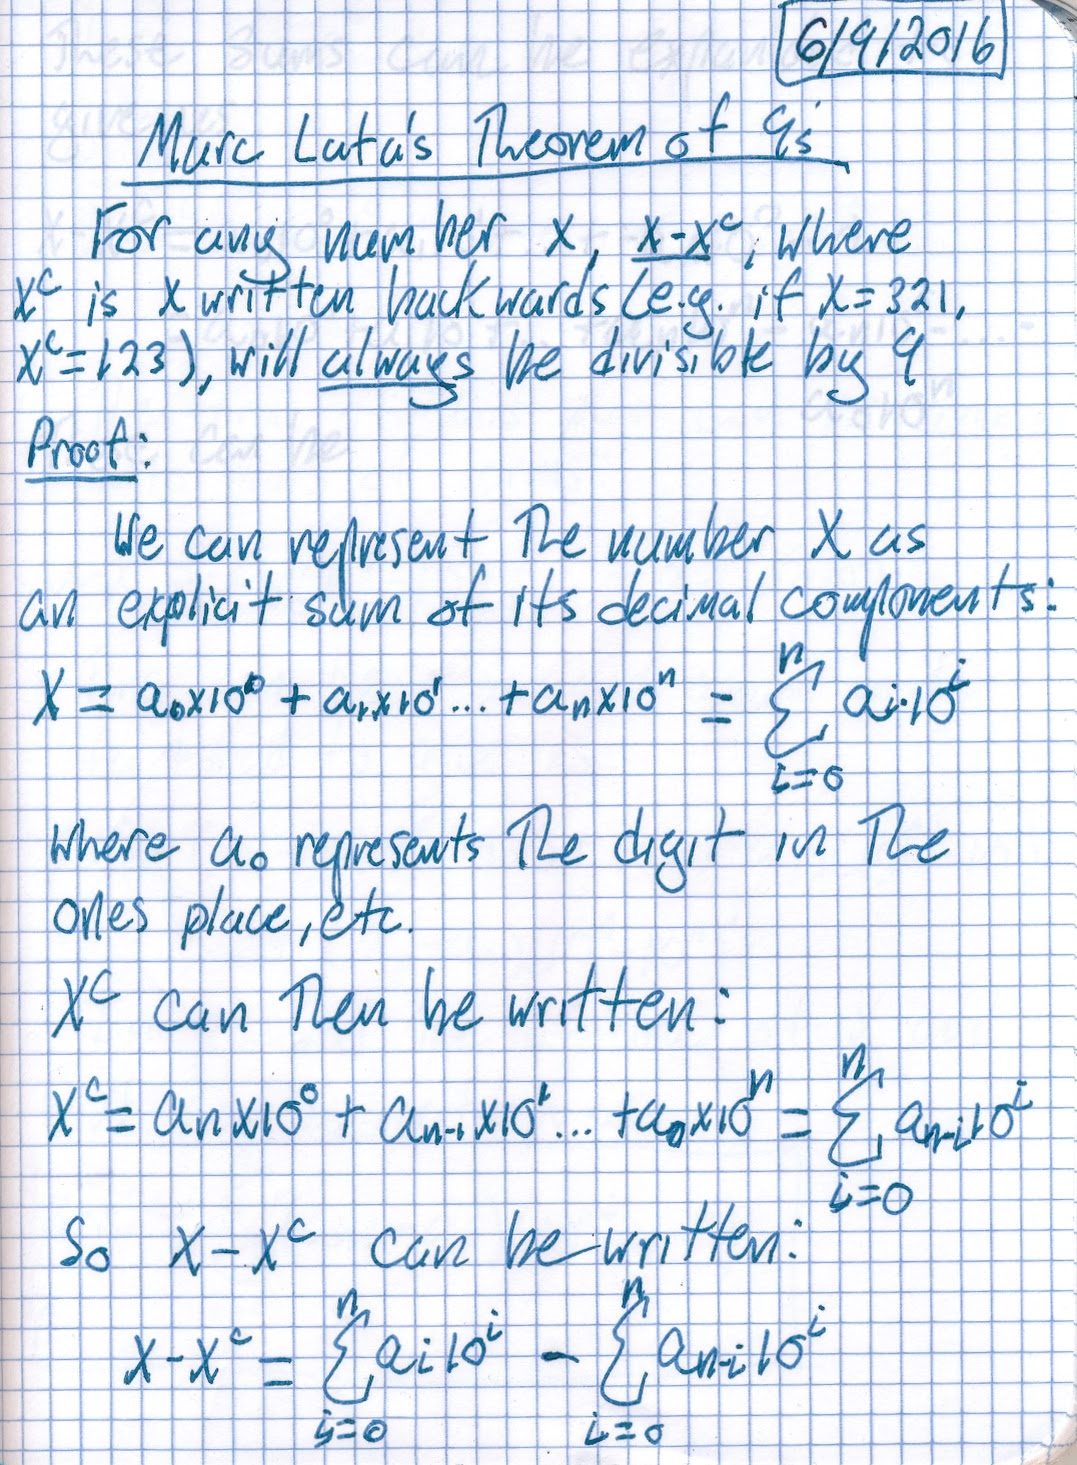 6/9/2016
Marc Lata's Theorem of 9s
For any number x, x-x^c, where
x^c is x written backwards (e.g. if x=321,
x^c=123), will always be divisible by 9
Proof:
We can represent the number X as
an explicit sum of its decimal components:
X = a₀×10⁰ + a₁×10¹... + aₙ×10ⁿ = Σ_{i=0}^{n} aᵢ·10ⁱ
where a₀ represents the digit in the
ones place, etc.
X^c can then be written:
X^c = aₙ×10⁰ + aₙ₋₁×10¹... + a₀×10ⁿ = Σ_{i=0}^{n} a_{n-i}10ⁱ
So X-X^c can be written:
X-X^c = Σ_{i=0}^{n} aᵢ10ⁱ - Σ_{i=0}^{n} a_{n-i}10ⁱ